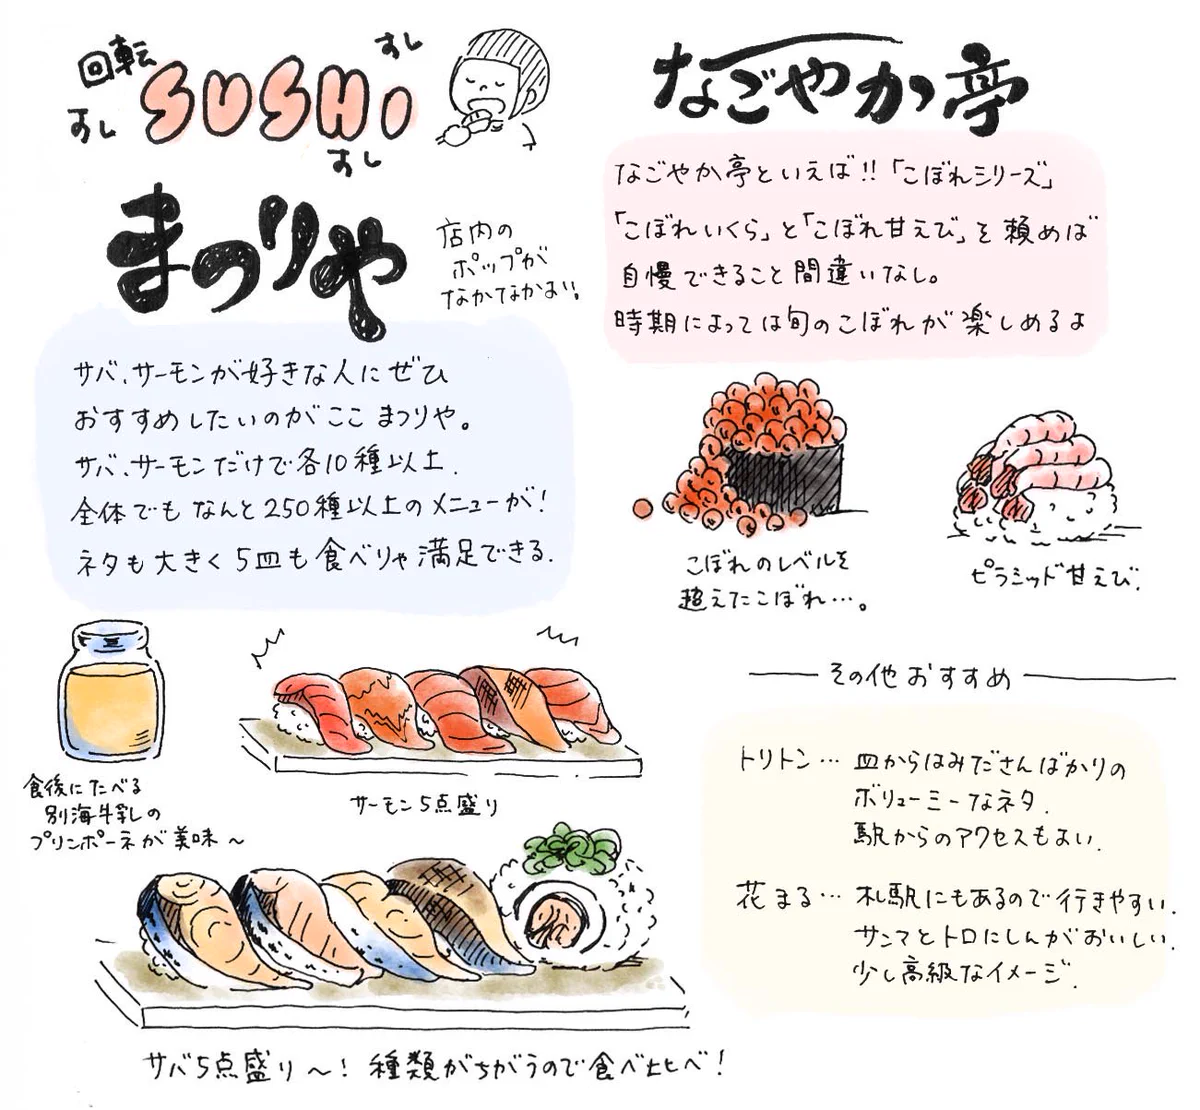 回転
SUSHI
すし
すし
すし
まつりや
店内の
ポップが
なかなかよい。
サバ、サーモンが好きな人にぜひ
おすすめしたいのがここ まつりや。
サバ、サーモンだけで各10種以上.
全体でも なんと250種以上のメニューが!
ネタも大きく 5皿も食べりゃ満足できる.
食後にたべる
別海牛乳の
プリンポーネが美味〜
サーモン5点盛り
サバ5点盛り〜! 種類がちがうので食べ比べ!
なごやか亭
なごやか亭といえば!!「こぼれシリーズ」
「こぼれいくら」と「こぼれ甘えび」を頼めば
自慢できること間違いなし。
時期によっては旬のこぼれが楽しめるよ
こぼれのレベルを
超えたこぼれ…。
ピラミッド甘えび.
その他おすすめ
トリトン… 皿からはみださんばかりの
ボリューミーなネタ.
駅からのアクセスもよい.
花まる… 札駅にもあるので行きやすい.
サンマとトロにしんがおいしい.
少し高級なイメージ.